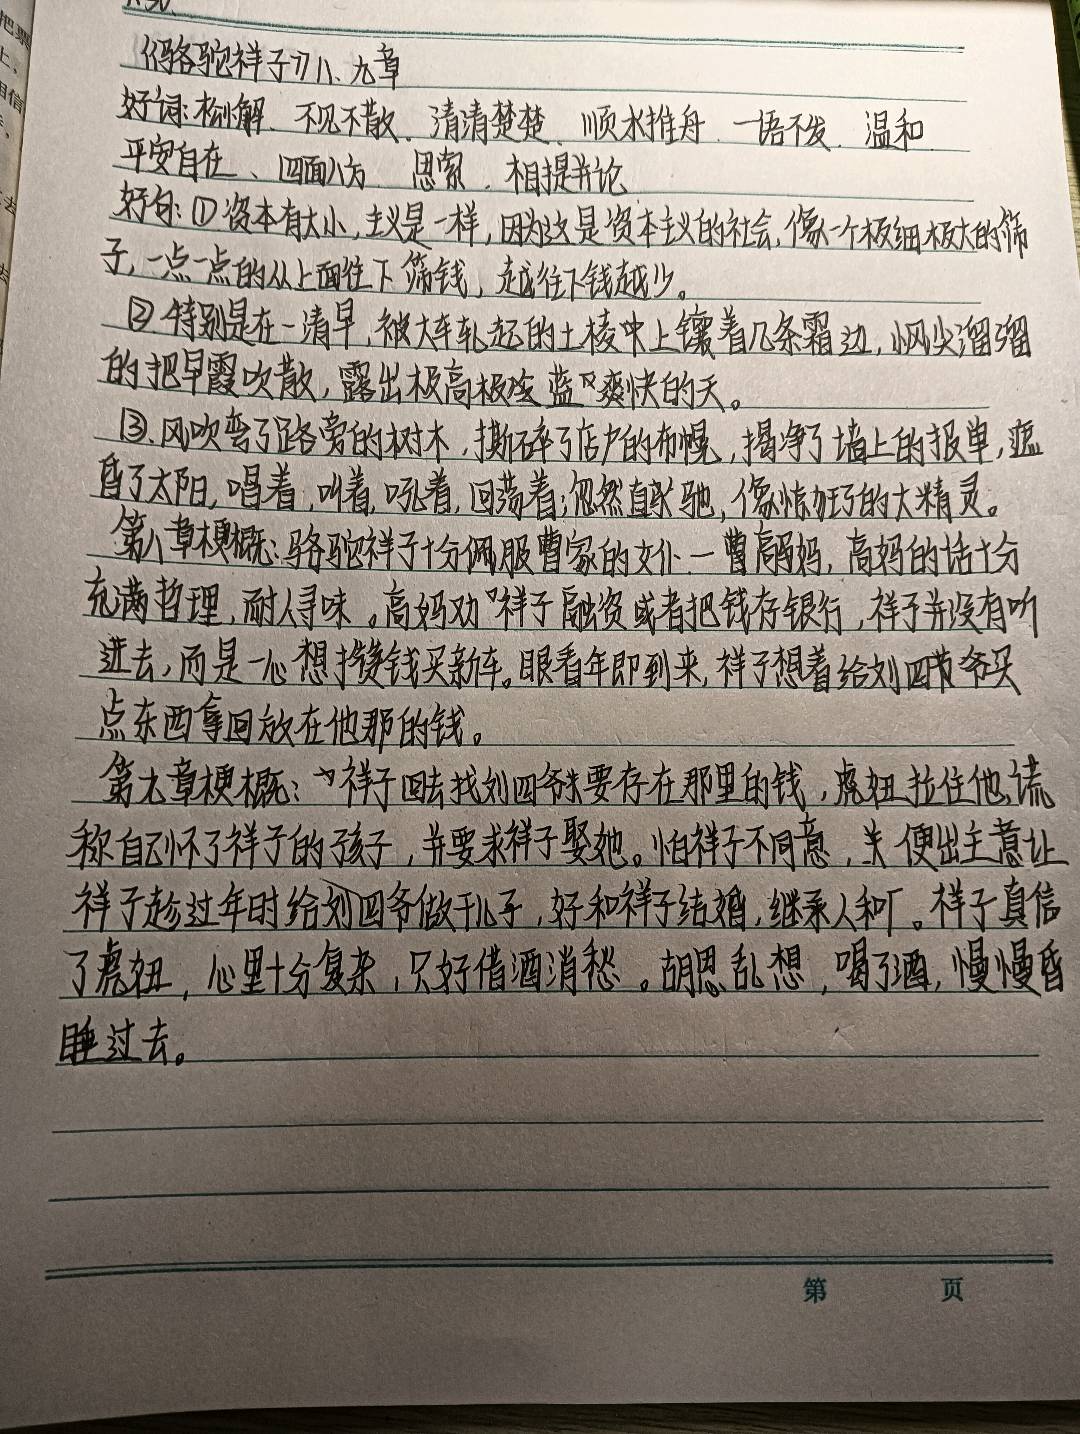 《骆驼祥子》八、九章
好词:松懈、不见不散、清清楚楚、顺水推舟、一语不发、温和
平安自在、四面八方、思索、相提并论
好句:①资本有大小,主义是一样,因为这是资本主义的社会,像一个极细极大的筛
子,一点一点的从上面往下筛钱,越往下钱越少。
②特别是在一清早,被大车轧起的土棱上镶着几条霜边,小风尖溜溜
的把早霞吹散,露出极高极冷蓝极爽快的天。
③.风吹弯了路旁的树木,撕碎了店户的布幌,揭净了墙上的报单,遮
昏了太阳,唱着,叫着,吼着,回荡着;忽然直驰,像惊狂了的大精灵。
第八章梗概:骆驼祥子十分佩服曹家的女仆一高妈,高妈的话十分
充满哲理,耐人寻味。高妈劝祥子融资或者把钱存银行,祥子并没有听
进去,而是一心想攒钱买新车。眼看年即到来,祥子想着给刘四爷买
点东西拿回放在他那的钱。
第九章梗概:祥子回去找刘四爷要存在那里的钱,虎妞拉住他,谎
称自己怀了祥子的孩子,并要求祥子娶她。怕祥子不同意,便出主意让
祥子趁过年时给刘四爷做干儿子,好和祥子结婚,继承人和厂。祥子真信
了虎妞,心里十分复杂,只好借酒消愁。胡思乱想,喝了酒,慢慢昏
睡过去。
第 页